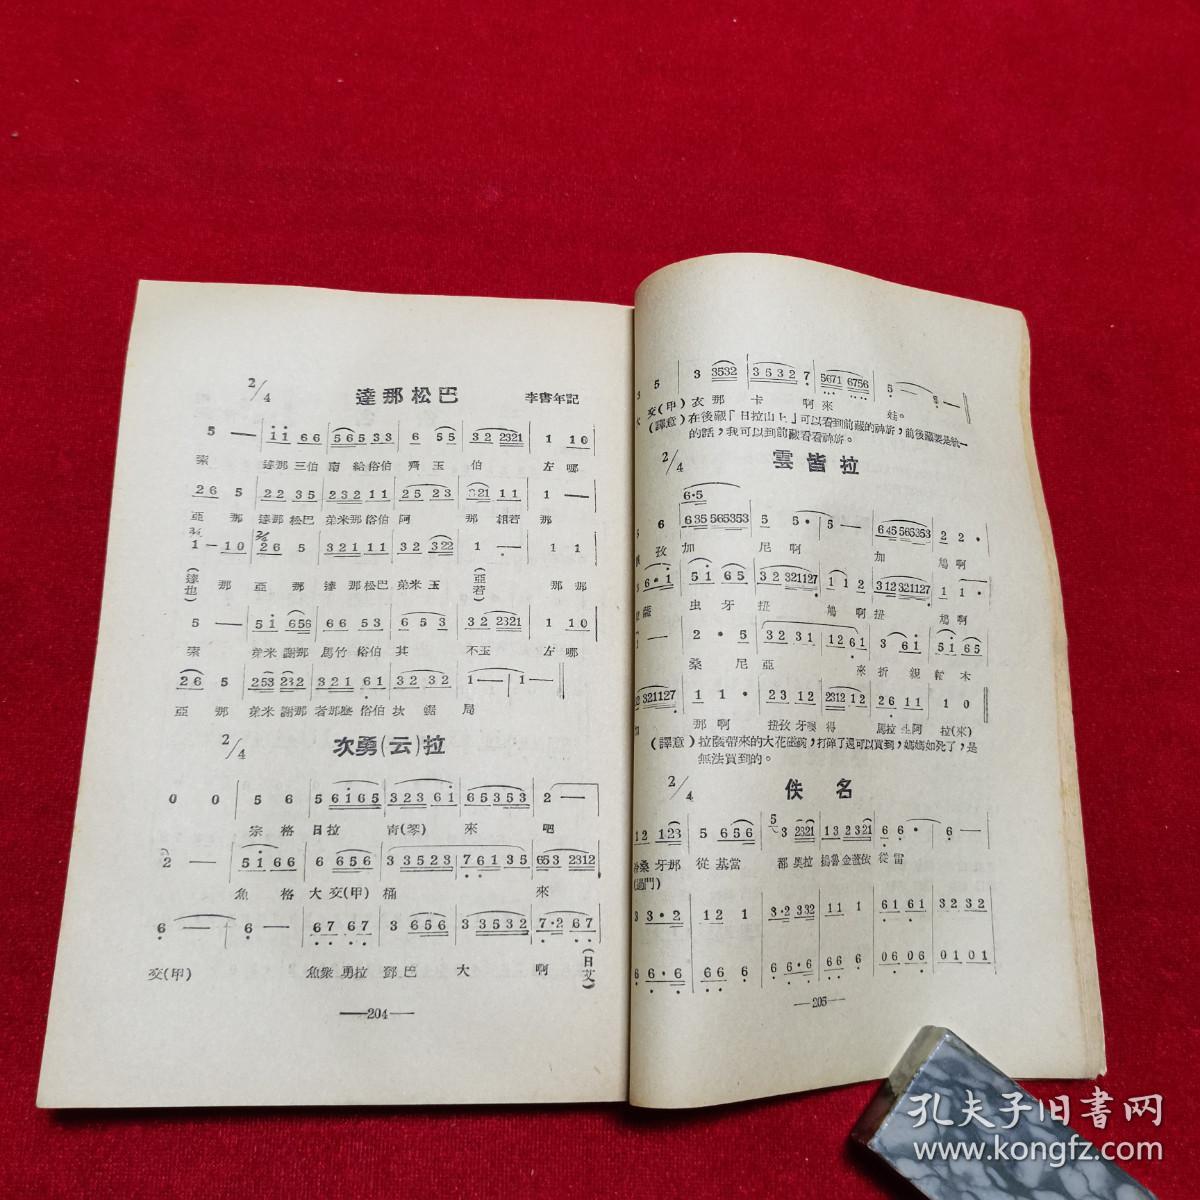 2/4 達那松巴 李書年記
5 — i i 6 6 5 6 5 3 3 6 5 5 3 2 2321 1 1 0
索 達那 三伯 南 給 俗伯 齊 玉 伯 左 哪
2 6 5 2 2 3 5 2 3 2 1 1 2 5 2 3 321 1 1 1 —
亞 那 達那 松巴 弟米那 俗伯 阿 那 相若 那
1 — 1 0 2 6 5 3 2 1 1 1 3 2 322 1 · 1 1
(達也) 那 亞 那 達 那松巴 弟米 玉 (亞若) 那 那
5 — 5 i 656 3 2 1 6 5 6 5 3 3 2 2321 1 1 0
索 弟米 謝那 馬竹 俗伯 其 不玉 左 哪
2 6 5 253 232 3 2 1 6 1 3 2 3 2 1 — 1 —
亞 那 弟米 謝那 者那 俗伯 次 鋸 局
2/4 次勇(云)拉
0 0 5 6 5 6 i 6 5 3 2 3 6 i 6 5 3 5 3 2 —
宗 格 日拉 甯(琴) 來 吧
2 — 5 i 6 6 6 6 5 6 3 3 5 2 3 7 6 1 3 5 653 2312
魚 格 大 交(甲) 桶 來
6 — 6 · — 6 7 6 7 3 6 5 6 3 3 5 3 2 7 · 2 6 7
交(甲) 魚梁 勇拉 鄧 巴 大 啊 (日艾)
—204—
5 3 3532 3 5 3 2 7 5671 6756 5 — 5 —
交(甲) 衣 那 卡 啊 來 娃。
(譯意) 在後藏「日拉山上」可以看到前藏的神斾，前後藏要是統一
的話，我可以到前藏看看神斾。
2/4 雲皆拉
6·5
6 6 35 565353 5 5 · 5 — 6 45 565353 2 2 ·
孜 加 尼 啊 加 鳩 啊
6 · i 5 i 6 5 3 2 321127 1 1 2 3 12 321127 1 1 ·
薩 虫 牙 扭 鳩 啊 扭 鳩 啊
1 — 2 · 5 3 2 3 1 1 2 6 1 3 6 i 5 i 6 5
桑 尼 亞 來 折 親 帕 木
32 321127 1 1 · 2 3 1 2 2312 1 2 6 1 1 0
那 啊 扭孜 牙 得 馬拉 阿 拉(來)
(譯意) 拉薩帶來的大花磁碗，打碎了還可以買到，媽媽如死了，是
無法買到的。
2/4 佚名
1 2 123 5 6 5 6 3 2321 1 3 2 321 6 6 · 6 —
桑 牙那 從 基當 都 奧拉 搗魯 金蓋依 從 雷
(過門)
3 3 · 2 1 2 1 3·2 332 1 1 1 6 1 6 1 3 2 3 2
6 6 · 6 6 6 6 6 6·6 6 6 6 6 0 6 0 6 0 1 0 1
—205—
孔夫子旧書网
www.kongfz.com